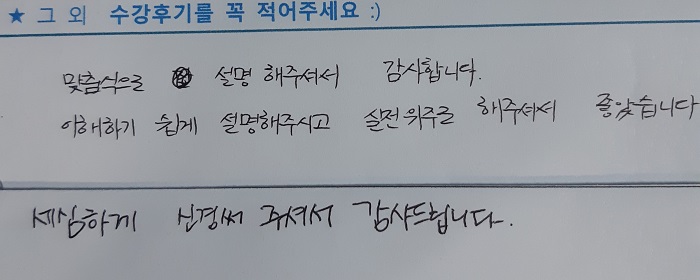 ★ 그 외 수강후기를 꼭 적어주세요 :)
맞춤식으로 설명 해주셔서 감사합니다.
이해하기 쉽게 설명해주시고 실전위주로 해주셔서 좋았습니다
세심하게 신경써 주셔서 감사드립니다.